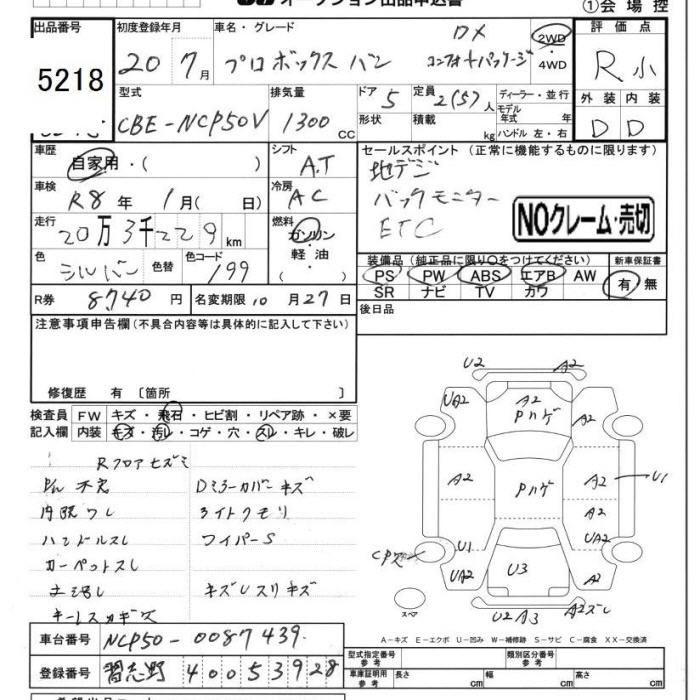 ①会場控
出品番号
5218
初度登録年月
20 7月
車名・グレード
プロボックス バン
DX
コンフォートパッケージ
2WD
4WD
評価点
R 小
型式
CBE-NCP50V
排気量
1300 CC
ドア 5
形状
定員 2(5)人
積載 kg
ディーラー・並行
モデル
年式 年
ハンドル 左・右
外装 内装
D D
車歴
自家用・( )
シフト
A.T
車検
R8年 1月( 日)
冷房
AC
セールスポイント(正常に機能するものに限ります)
地デジ
バックモニター
ETC
NOクレーム・売切
走行
20万3千229km
燃料
ガソリン
軽油
・( )
色
シルバー
色替
色コード
199
装備品(純正品に限り○をつけてください)
PS PW ABS エアB AW
SR ナビ TV カワ
新車保証書
有・無
R券 8740円
名変期限 10月27日
後日品
注意事項申告欄(不具合内容等は具体的に記入して下さい)
修復歴 有〔箇所 〕
検査員 FW キズ・飛石・ヒビ割・リペア跡・×要
記入欄 内装 キズ・汚レ・コゲ・穴・スレ・キレ・破レ
Rフロアヒズミ
Dミラーカバーキズ
内限ワレ
ライトクモリ
ハンドルスレ
ワイパーS
カーペットスレ
キズUスリキズ
U2 A2
UA2 A2 A2
Pハゲ
A2 Pハゲ A2 U1
A2
U1 UA2
UA2 U3 A2
U2 A3 A2ズレ
スペア
A-キズ E-エクボ U-凹み W-補修跡 S-サビ C-腐食 XX-交換済
車台番号 NCP50-0087439
登録番号 習志野 400 53928
型式指定番号
参考
類別区分番号
参考
車庫証明用
参考
長さ cm
幅 cm
高さ cm